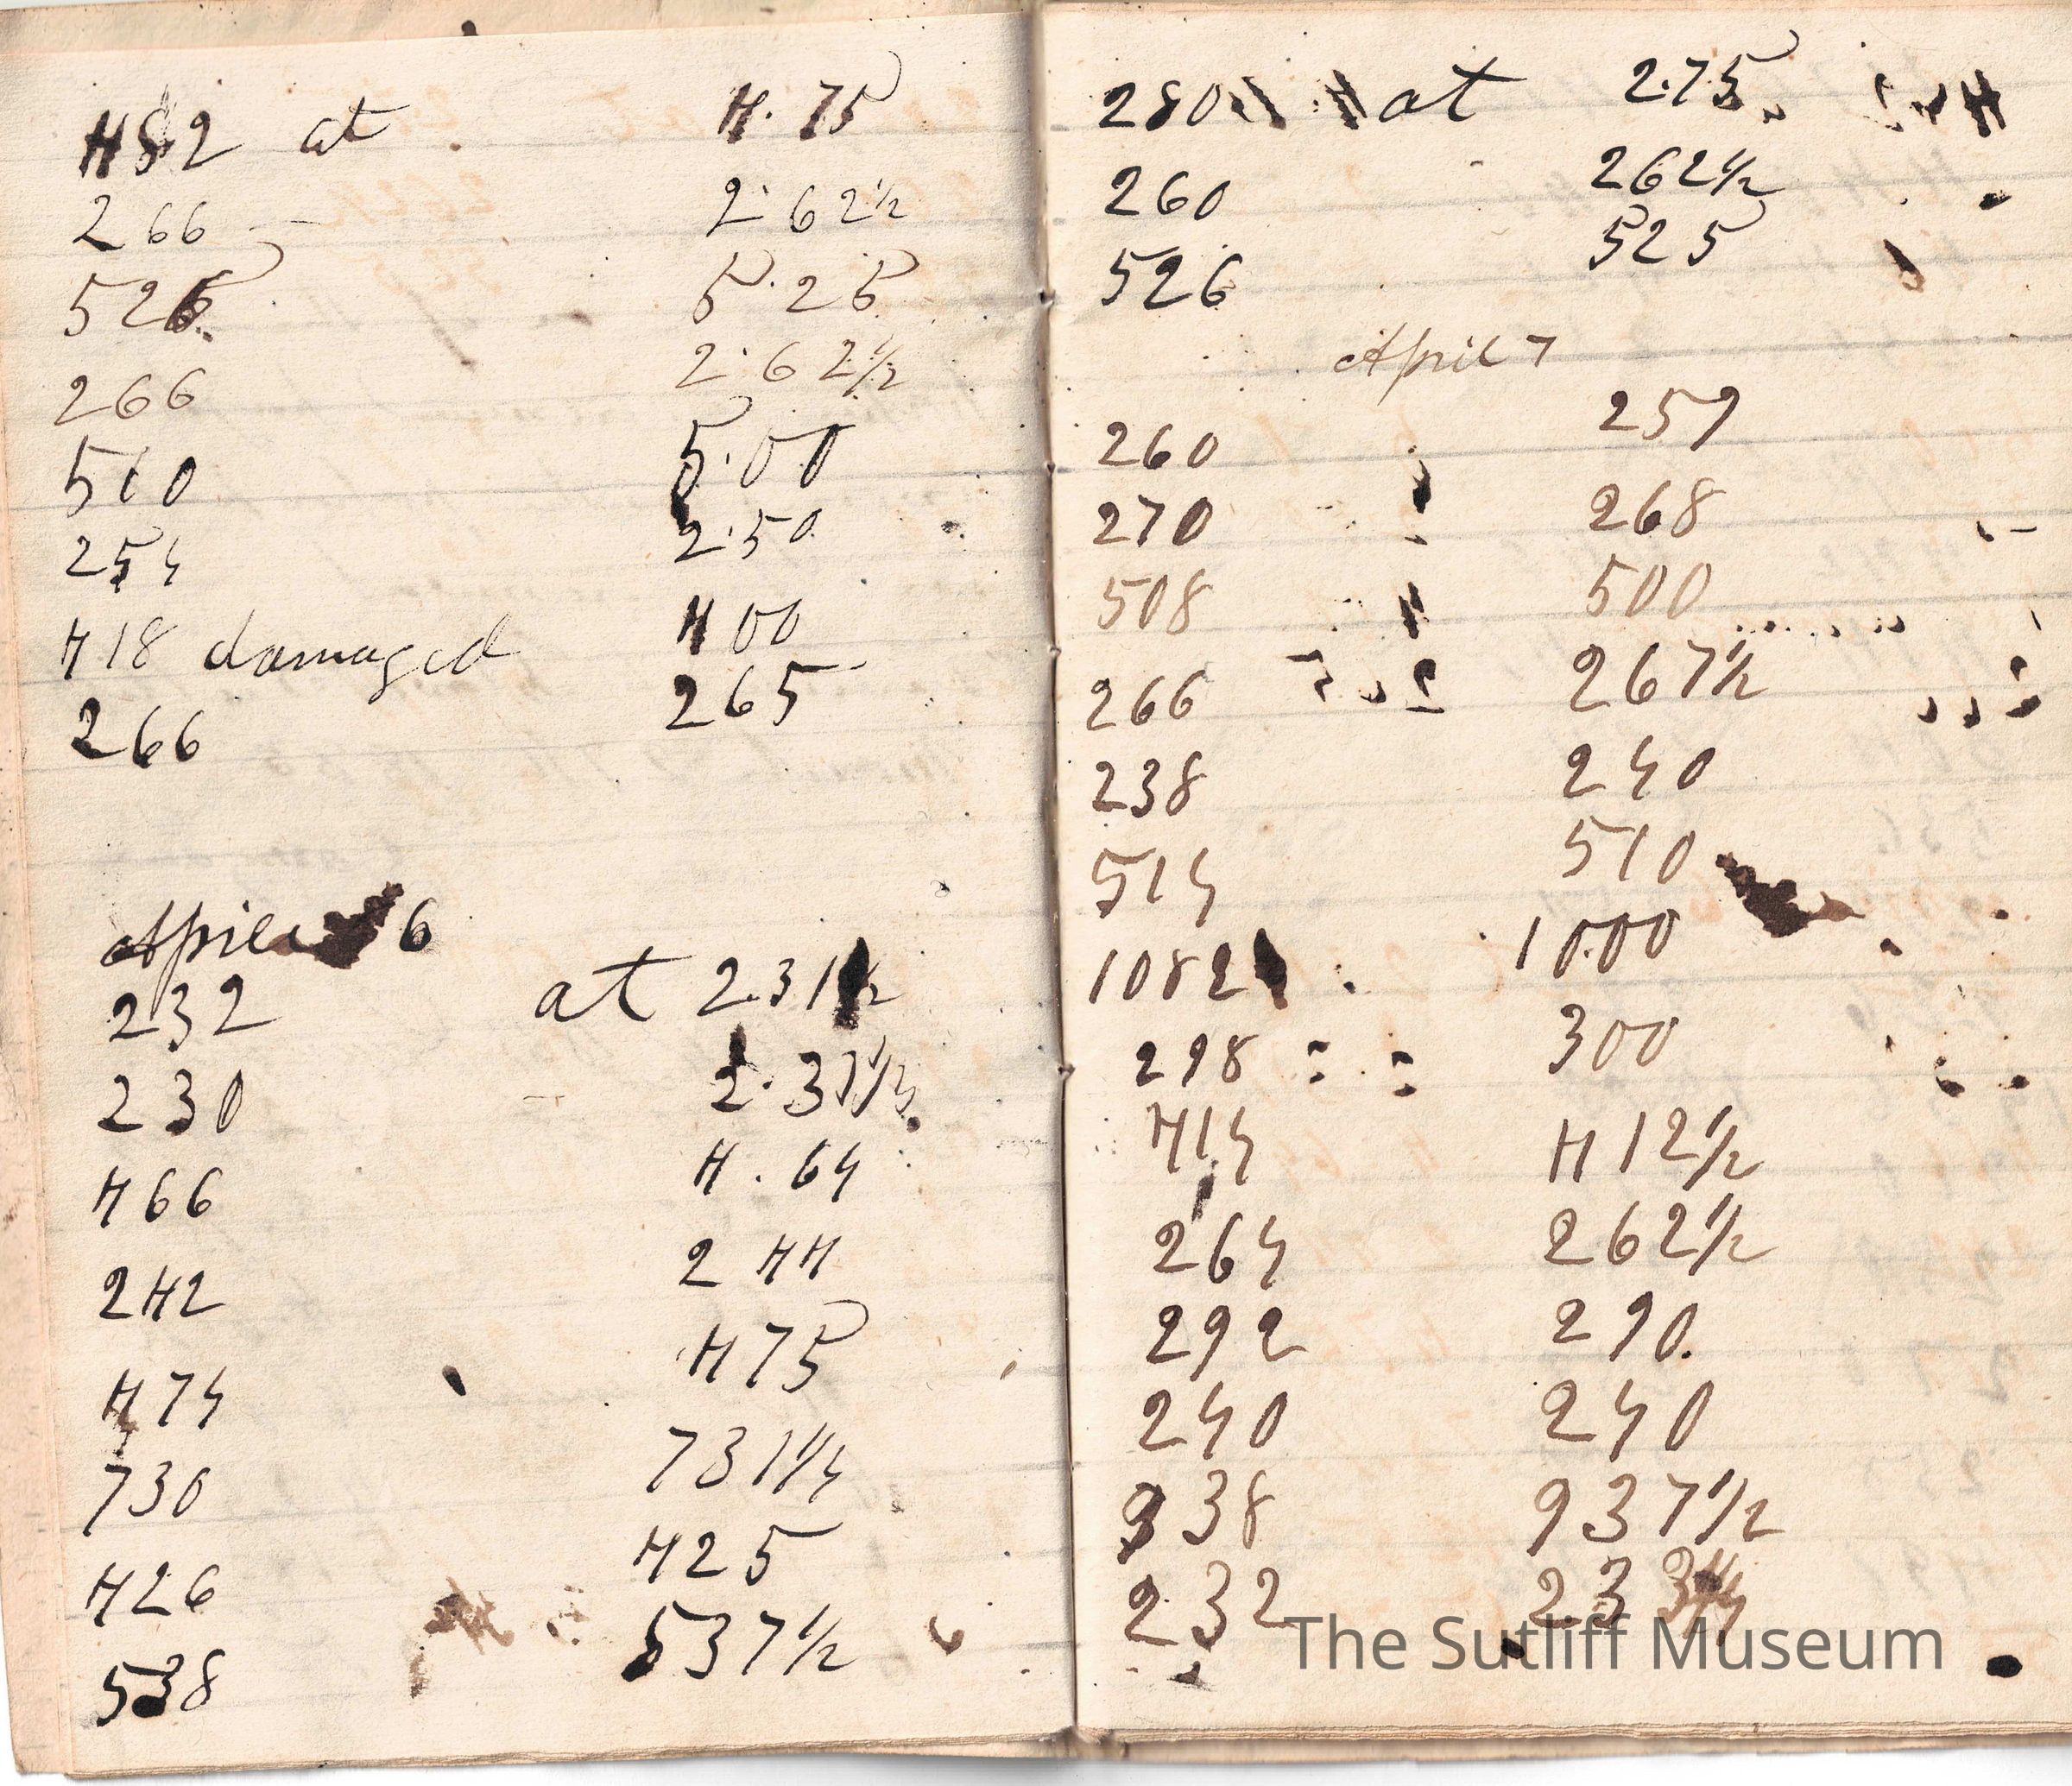 482 at 4.75
266 2.62½
526 5.25
266 2.62½
510 5.00
254 2.50
418 damaged 4 00
266 265
April 6
232 at 2.31½
230
466 4.64
242 2 44
474 475
730 731¼
426 425
538 537½
280 at 2.75
260 262½
526 525
April 7
260 259
270 268
508 500
266 267½
238 240
514 510
1082 10.00
298 300
414 412½
264 262½
292 290.
240 240
938 937½
232
The Sutliff Museum